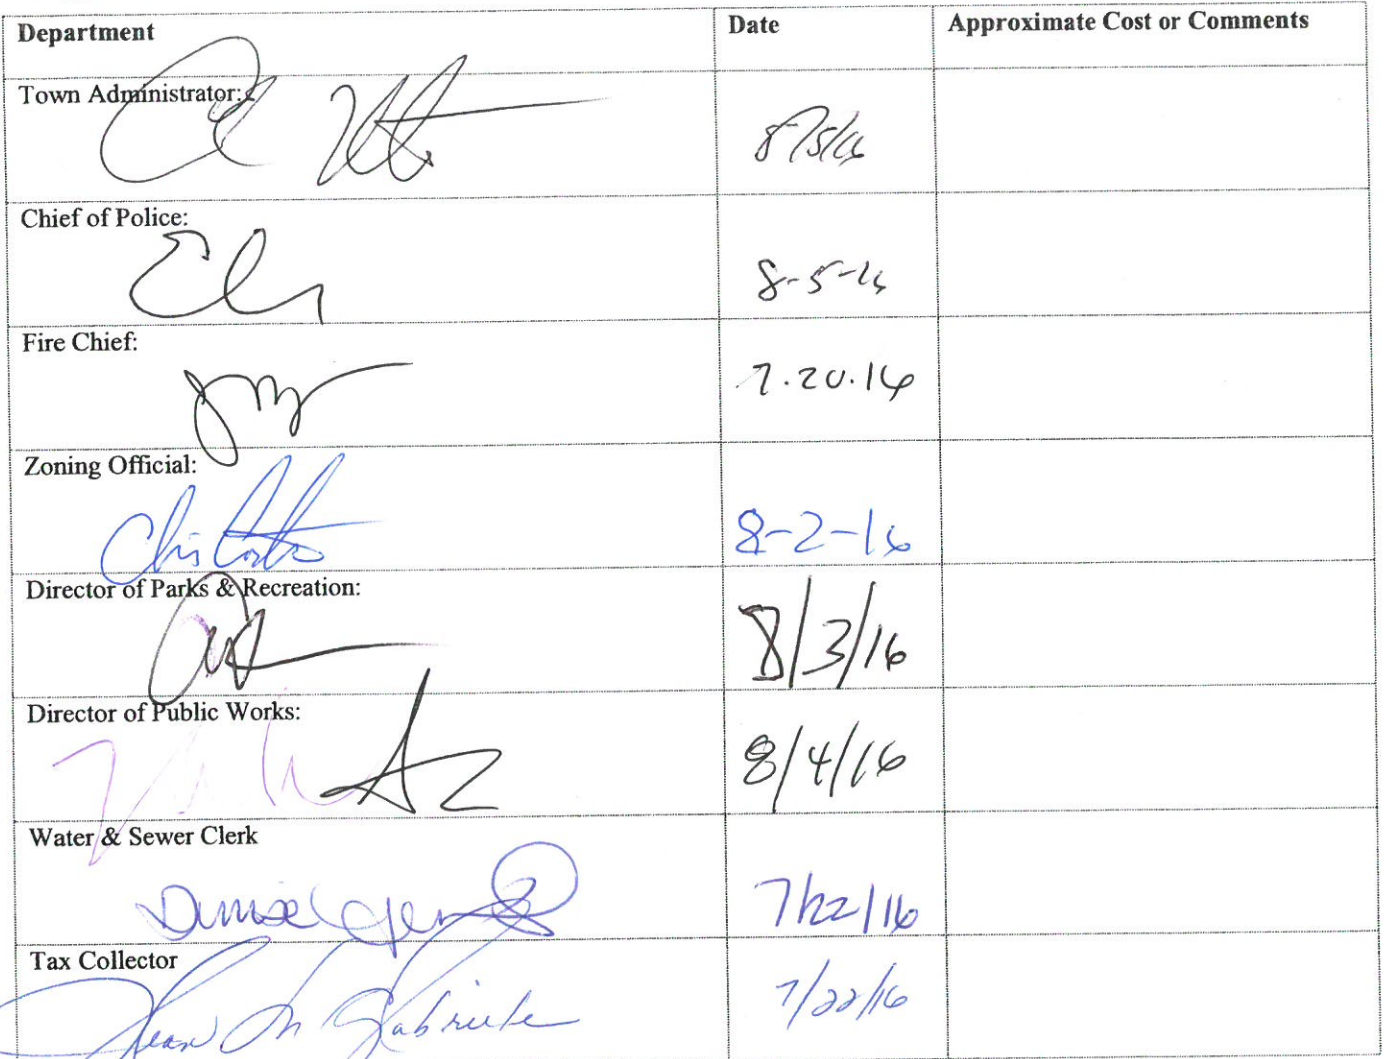 Department Date Approximate Cost or Comments
Town Administrator:
8/5/16
Chief of Police:
8-5-16
Fire Chief:
7.20.16
Zoning Official:
8-2-16
Director of Parks & Recreation:
8/3/16
Director of Public Works:
8/4/16
Water & Sewer Clerk
Denise 7/22/16
Tax Collector
Jean M Gabriele 7/22/16